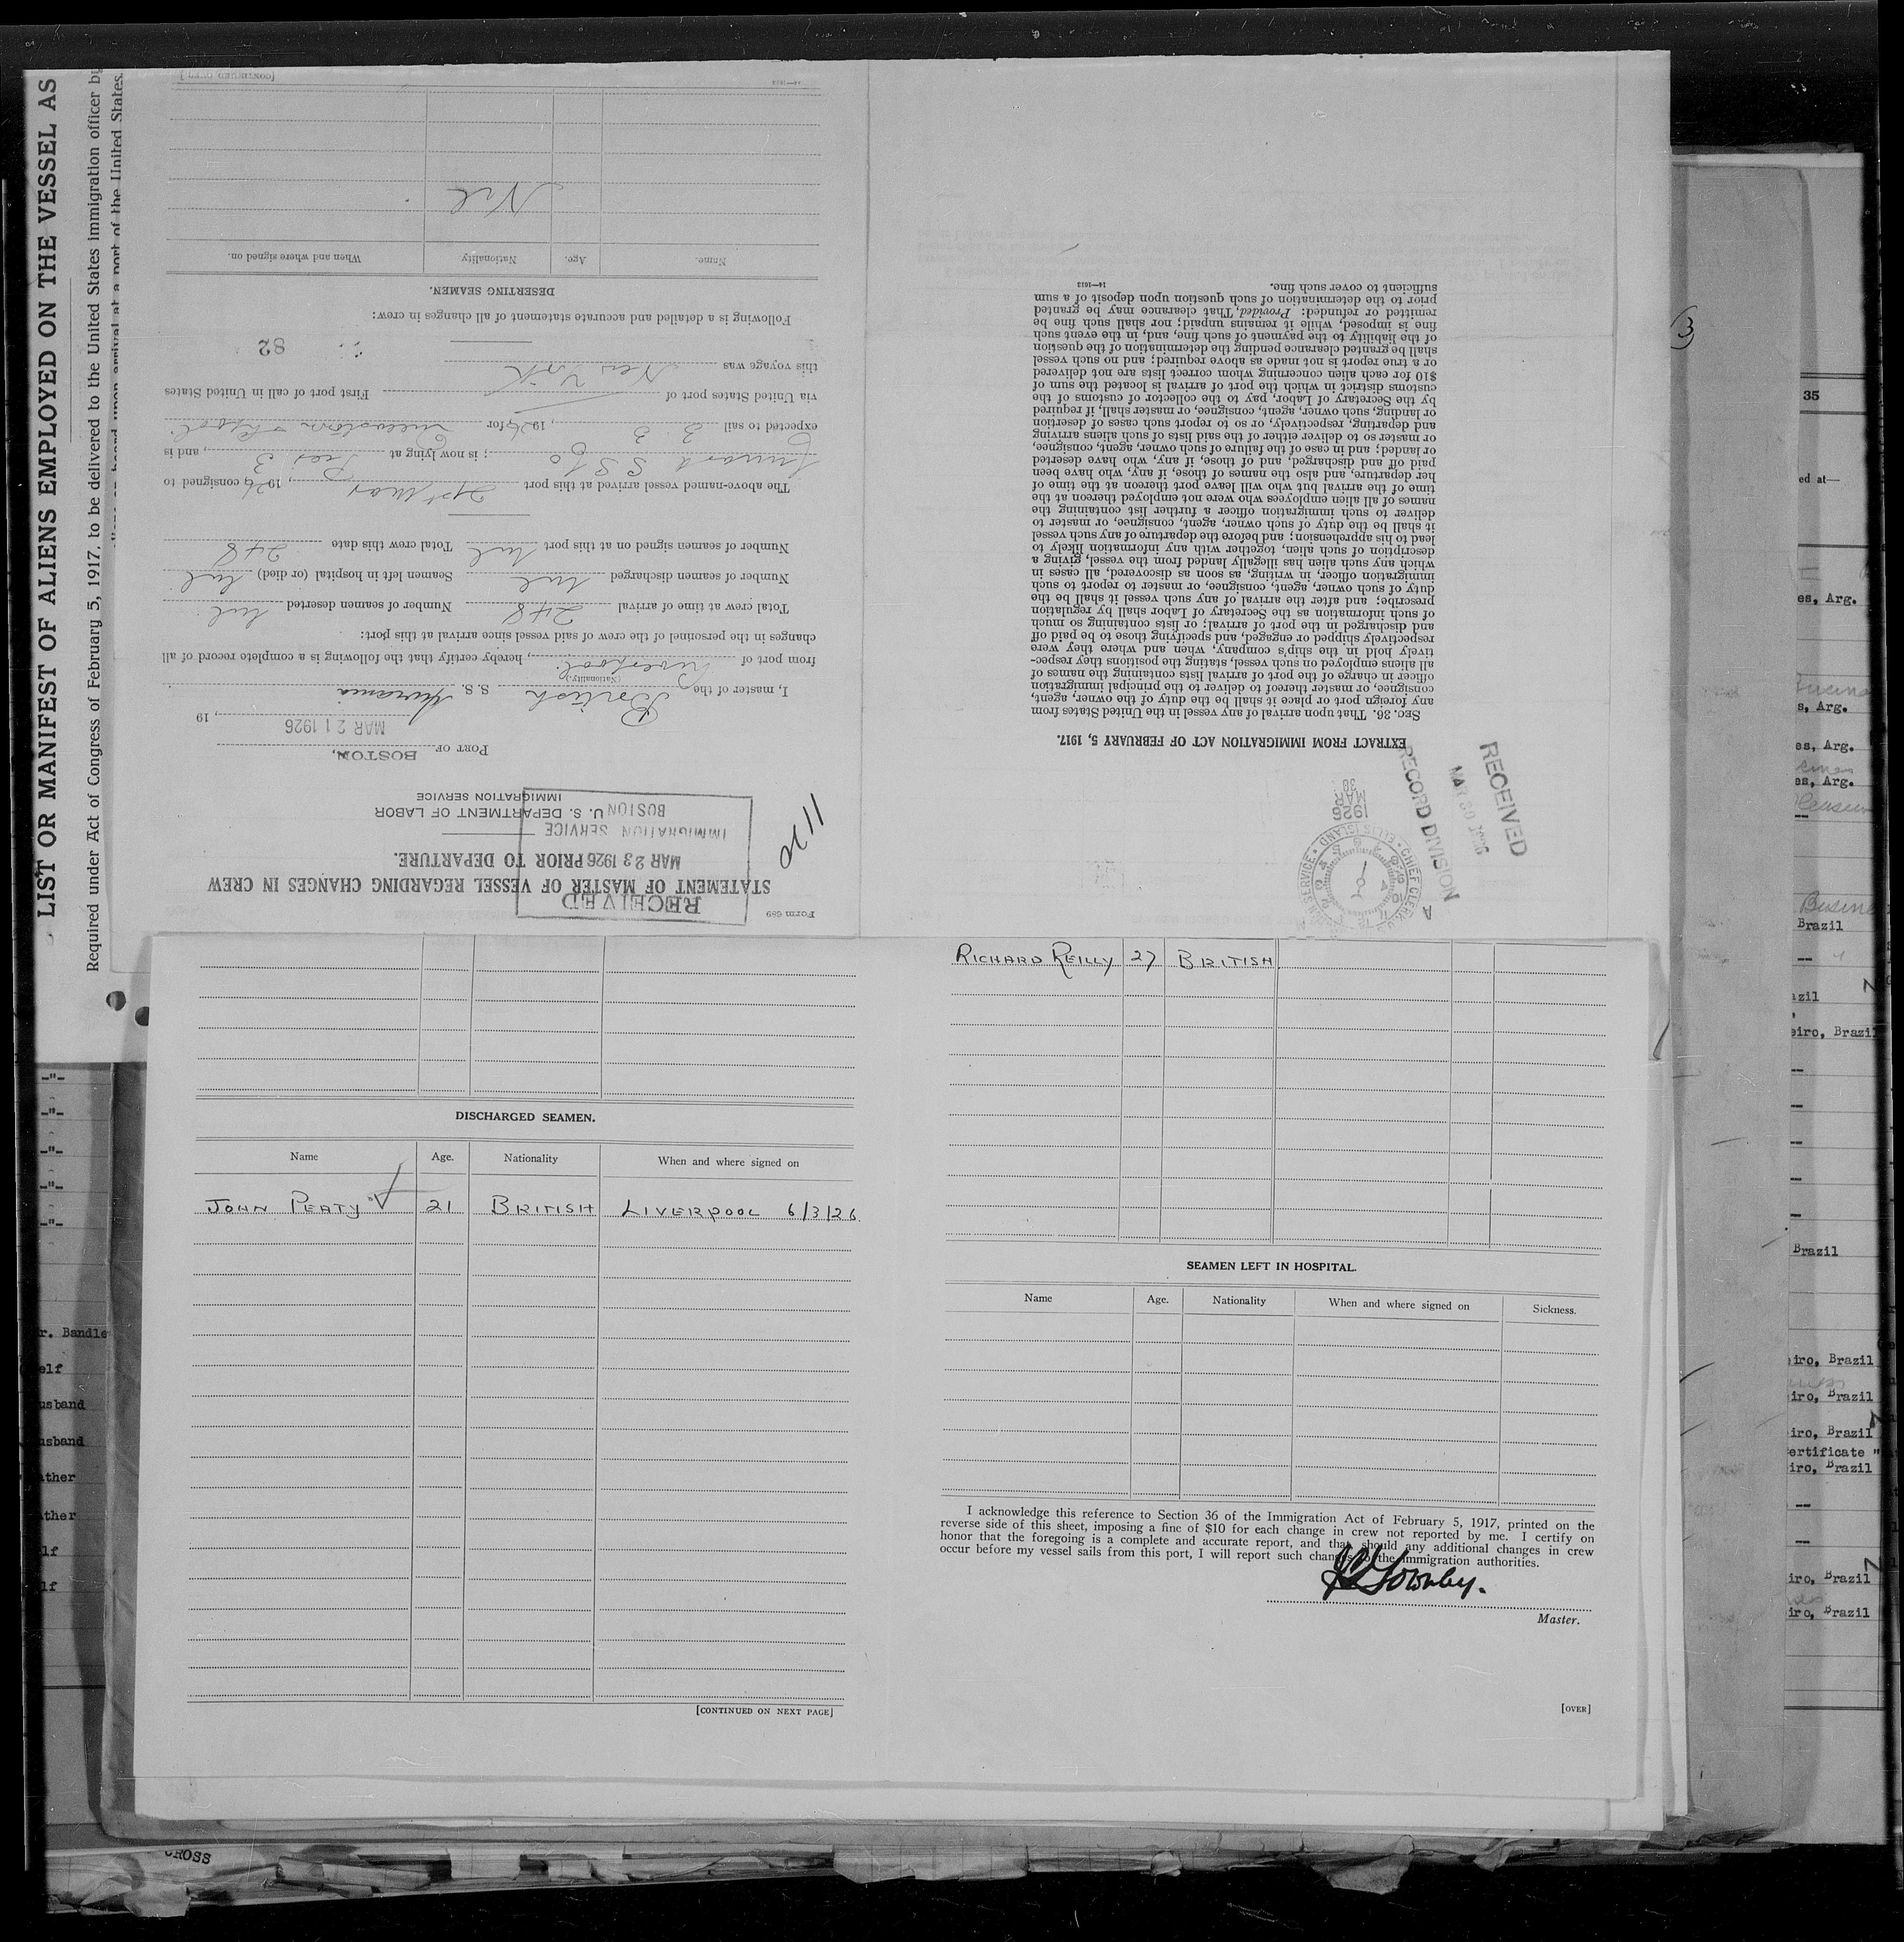 LIST OR MANIFEST OF ALIENS EMPLOYED ON THE VESSEL AS
Required under Act of Congress of February 5, 1917, to be delivered to the United States immigration officer by
port of the United States.
Form 689
STATEMENT OF MASTER OF VESSEL REGARDING CHANGES IN CREW
PRIOR TO DEPARTURE.
RECEIVED
MAR 23 1926
IMMIGRATION SERVICE
BOSTON
U. S. DEPARTMENT OF LABOR
IMMIGRATION SERVICE
PORT OF BOSTON,
MAR 21 1926, 19
I, master of the British S. S.
(Nationality.)
from port of Liverpool, hereby certify that the following is a complete record of all
changes in the personnel of the crew of said vessel since arrival at this port:
Total crew at time of arrival 248 Number of seamen deserted Nil
Number of seamen discharged Nil Seamen left in hospital (or died) Nil
Number of seamen signed on at this port Nil Total crew this date 248
The above-named vessel arrived at this port 21st Mar, 1926, consigned to
Cunard SS Co; is now lying at Pier 3, and is
expected to sail, 1926 for
via United States port of First port of call in United States
this voyage was New York
82
Following is a detailed and accurate statement of all changes in crew:
DESERTING SEAMEN.
Name. Age. Nationality When and where signed on.
Nil
14—1613
[CONTINUED OVER]
EXTRACT FROM IMMIGRATION ACT OF FEBRUARY 5, 1917.
SEC. 36. That upon arrival of any vessel in the United States from
any foreign port or place it shall be the duty of the owner, agent,
consignee, or master thereof to deliver to the principal immigration
officer in charge of the port of arrival lists containing the names of
all aliens employed on such vessel, stating the positions they respec-
tively hold in the ship's company, when and where they were
respectively shipped or engaged, and specifying those to be paid off
and discharged in the port of arrival; or lists containing so much
of such information as the Secretary of Labor shall by regulation
prescribe; and after the arrival of any such vessel it shall be the
duty of such owner, agent, consignee, or master to report to such
immigration officer, in writing, as soon as discovered, all cases in
which any such alien has illegally landed from the vessel, giving a
description of such alien, together with any information likely to
lead to his apprehension; and before the departure of any such vessel
it shall be the duty of such owner, agent, consignee, or master to
deliver to such immigration officer a further list containing the
names of all alien employees who were not employed thereon at the
time of the arrival but who will leave port thereon at the time of
her departure, and also the names of those, if any, who have been
paid off and discharged, and of those, if any, who have deserted
or landed; and in case of the failure of such owner, agent, consignee,
or master so to deliver either of the said lists of such aliens arriving
and departing, respectively, or so to report such cases of desertion
or landing, such owner, agent, consignee, or master shall, if required
by the Secretary of Labor, pay to the collector of customs of the
customs district in which the port of arrival is located the sum of
$10 for each alien concerning whom correct lists are not delivered
or a true report is not made as above required; and no such vessel
shall be granted clearance pending the determination of the question
of the liability to the payment of such fine, and, in the event such
fine is imposed, while it remains unpaid; nor shall such fine be
remitted or refunded: Provided, That clearance may be granted
prior to the determination of such question upon deposit of a sum
sufficient to cover such fine.
14—1613
RECEIVED
MAR 30 1926
RECORD DIVISION
1926
MAR
30
CHIEF CLERK
ELLIS ISLAND
DISCHARGED SEAMEN.
Name Age. Nationality When and where signed on
JOHN PEATY 21 BRITISH LIVERPOOL 6/3/26
[CONTINUED ON NEXT PAGE]
RICHARD REILLY 27 BRITISH
SEAMEN LEFT IN HOSPITAL.
Name Age. Nationality When and where signed on Sickness.
I acknowledge this reference to Section 36 of the Immigration Act of February 5, 1917, printed on the
reverse side of this sheet, imposing a fine of $10 for each change in crew not reported by me. I certify on
honor that the foregoing is a complete and accurate report, and that should any additional changes in crew
occur before my vessel sails from this port, I will report such changes to the immigration authorities.
Master.
[OVER]
3
35
ed at—
es, Arg.
s, Arg.
es, Arg.
es, Arg.
Brazil
azil
eiro, Brazil
Brazil
iro, Brazil
iro, Brazil
iro, Brazil
ertificate "
iro, Brazil
iro, Brazil
iro, Brazil
r. Bandle
elf
usband
usband
ather
ather
lf
lf
CROSS